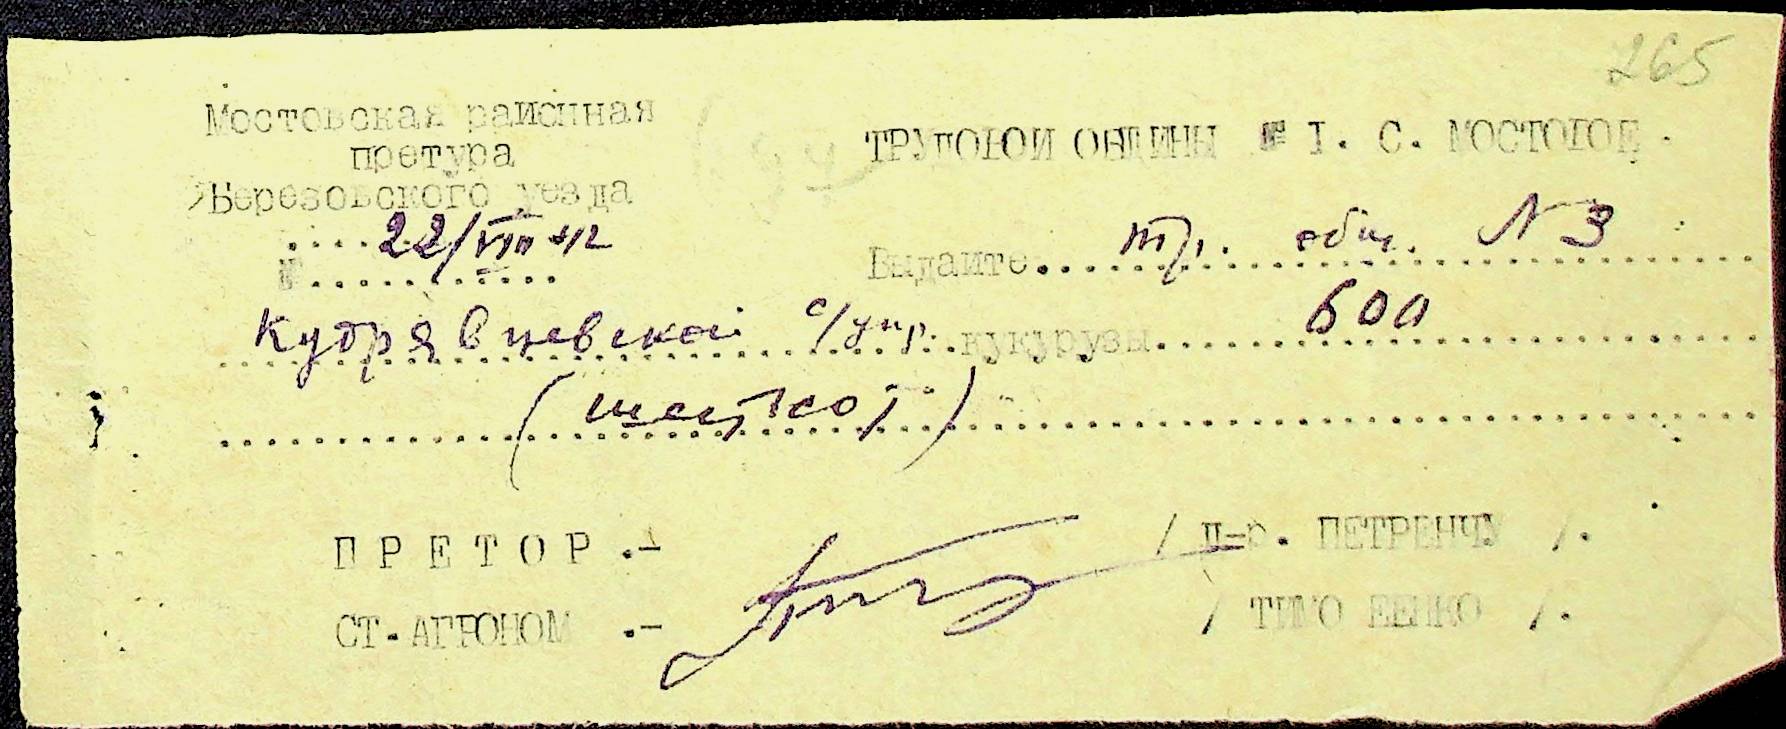 265
Мостовская районная
претура
Березовского уезда
22/VIII 42
№
ТРУДОВОЙ ОБЩИНЫ № 1. С. МОСТОВОЕ.
Выдайте тр. общ. N 3
Кудрявцевской с/упр. кукурузы 600
(шестсот)
ПРЕТОР.- / П-р. ПЕТРЕНЧУ /.
СТ.АГРОНОМ .- / ТИМО ЕЕНКО /.